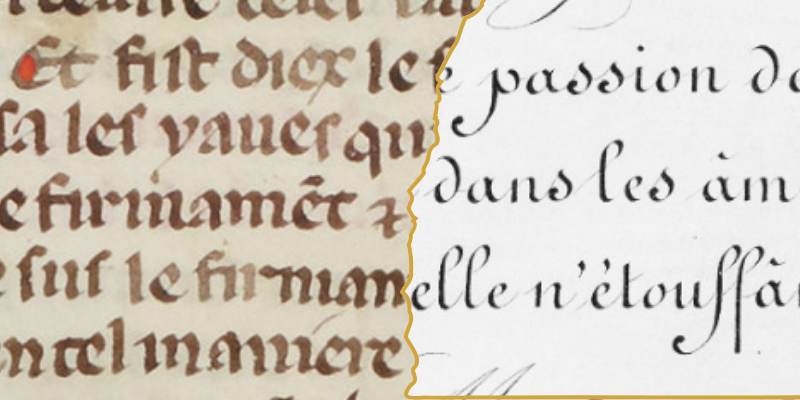 Et fist diex le f
sa les yaues qu
e firmamēt ⁊
e sus le firmam
en tel maniere
passion de
dans les âm
elle n'étouffâ